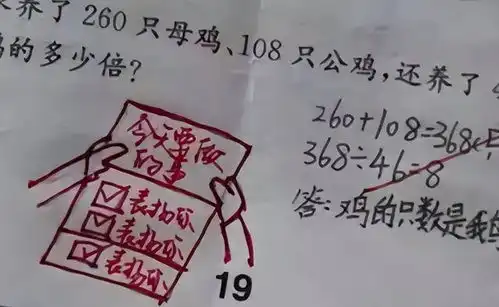 养了 260 只母鸡、108 只公鸡,还养了
的多少倍?
260+108=368(只
368÷46=8
答:鸡的只数是
今天要做
的事
表扬你
表扬你
表扬你
19